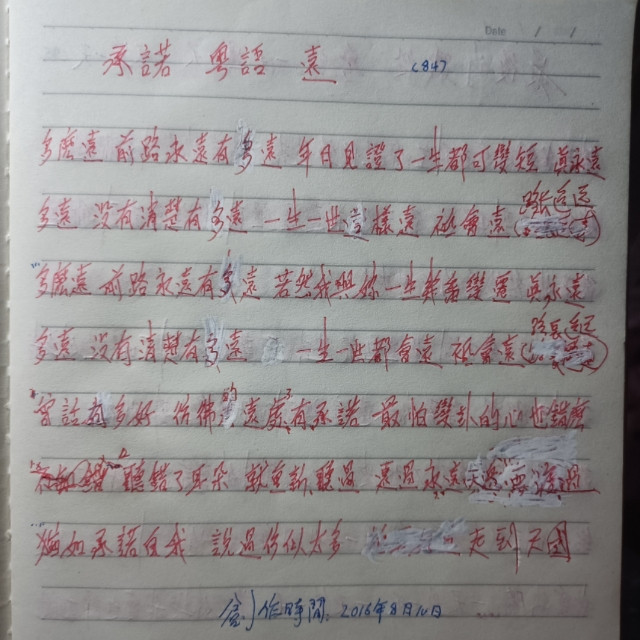 Date / /
承諾 粵語 遠 (84)
多麽遠 前路永遠有多遠 年日見證了一生都可變短 真永遠
多遠 沒有清楚有多遠 一生一世這樣遠 祗會遠
多麽遠 前路永遠有多遠 若然我與妳一生 變遷 真永遠
多遠 沒有清楚有多遠 一生一世都會遠 祗會遠
當話有多好 彷彿的遠處有承諾 最怕變卦的心也錯麽
聽錯了耳朵 就重新聽過 永遠
猶如承諾自我 說過彷似太多 走到天國
創作時間 2016年8月10日